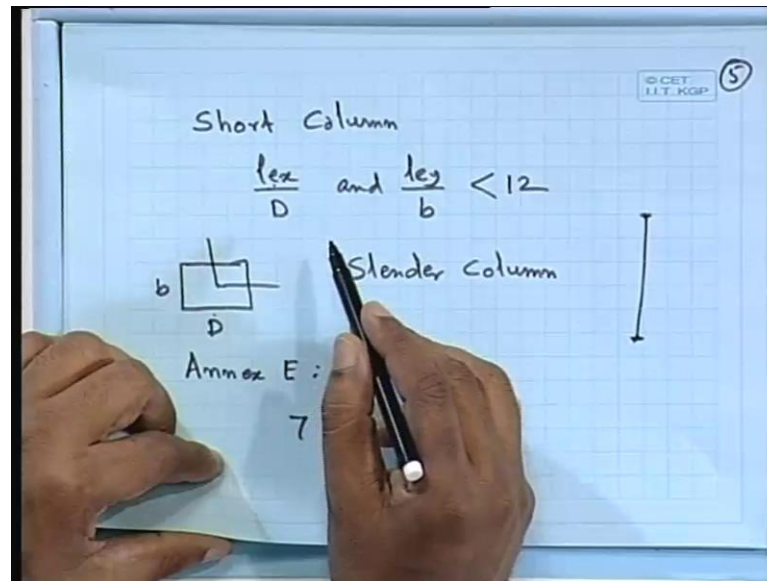 © CET
I.I.T. KGP
5
Short Column
lex/D and ley/b < 12
b
D
Slender Column
Annex E :
7